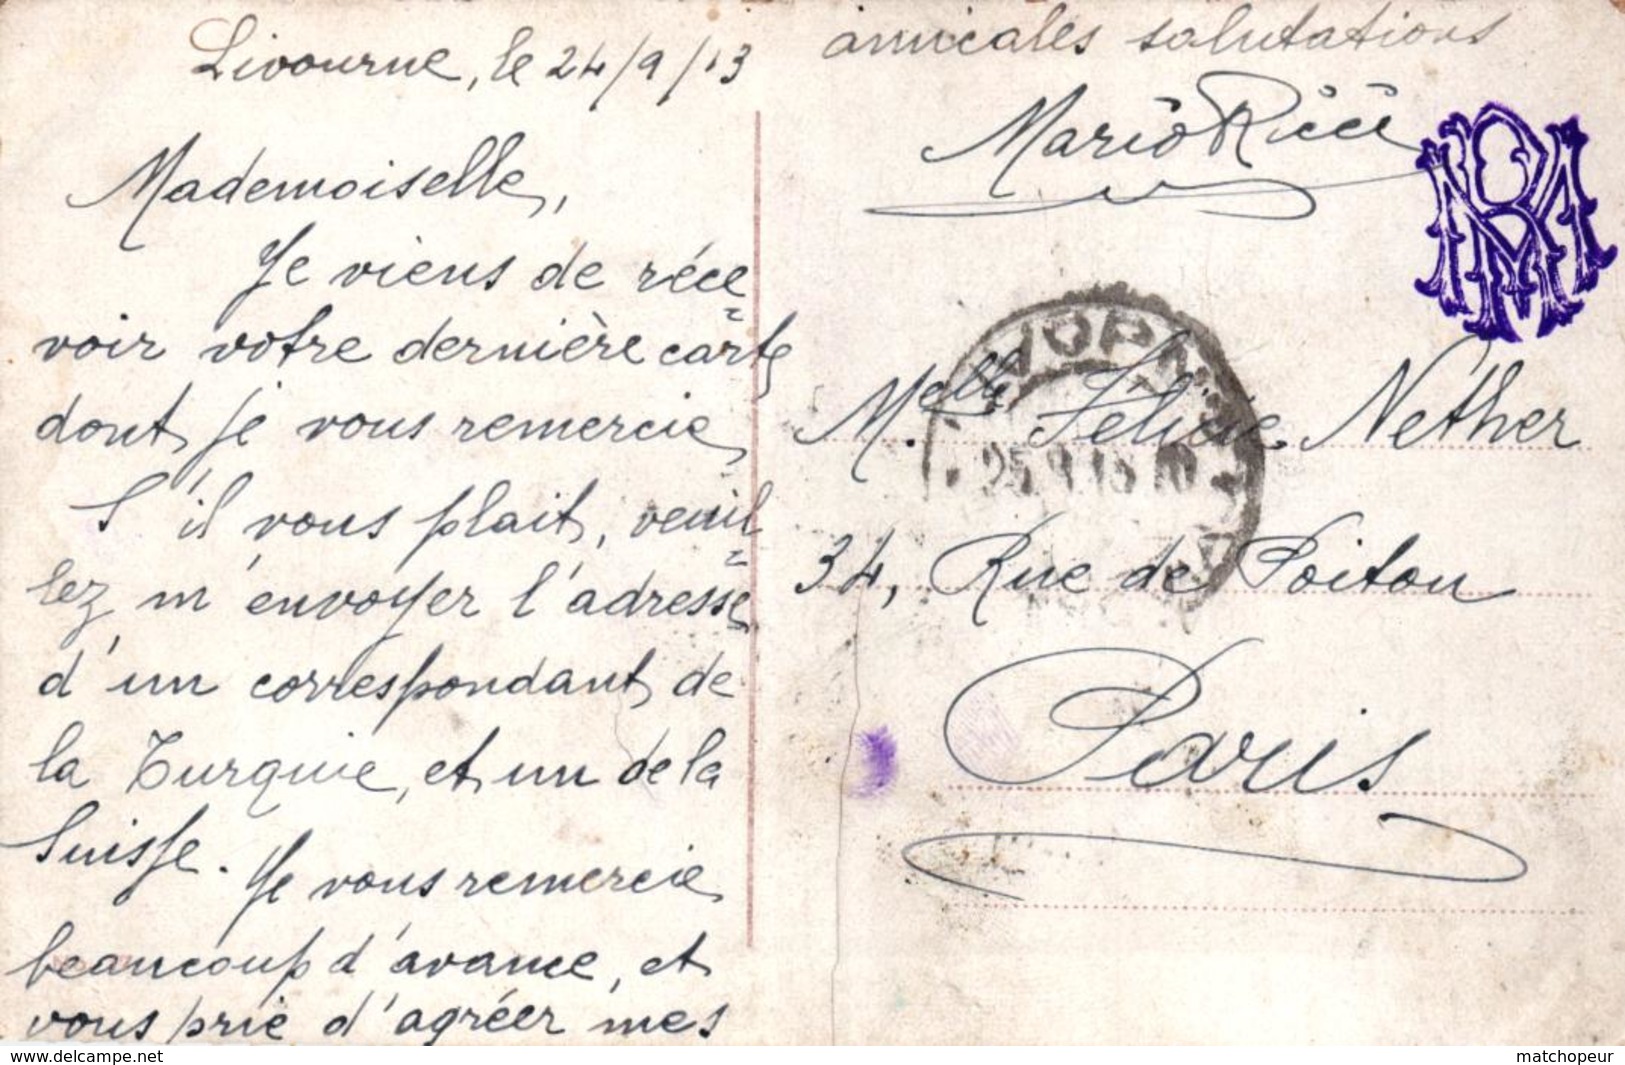 Livourne, le 24/9/13
Mademoiselle,
Je viens de réce=
voir votre dernière carte
dont je vous remercie
S'il vous plait, veuil=
lez m'envoyer l'adresse
d'un correspondant de
la Turquie, et un de la
Suisse. Je vous remercie
beaucoup d'avance, et
vous prie d'agréer mes
amicales salutations
Mario Ricci
MR
Melle Félicie Nether
34, Rue de Poitou
Paris
matchopeur